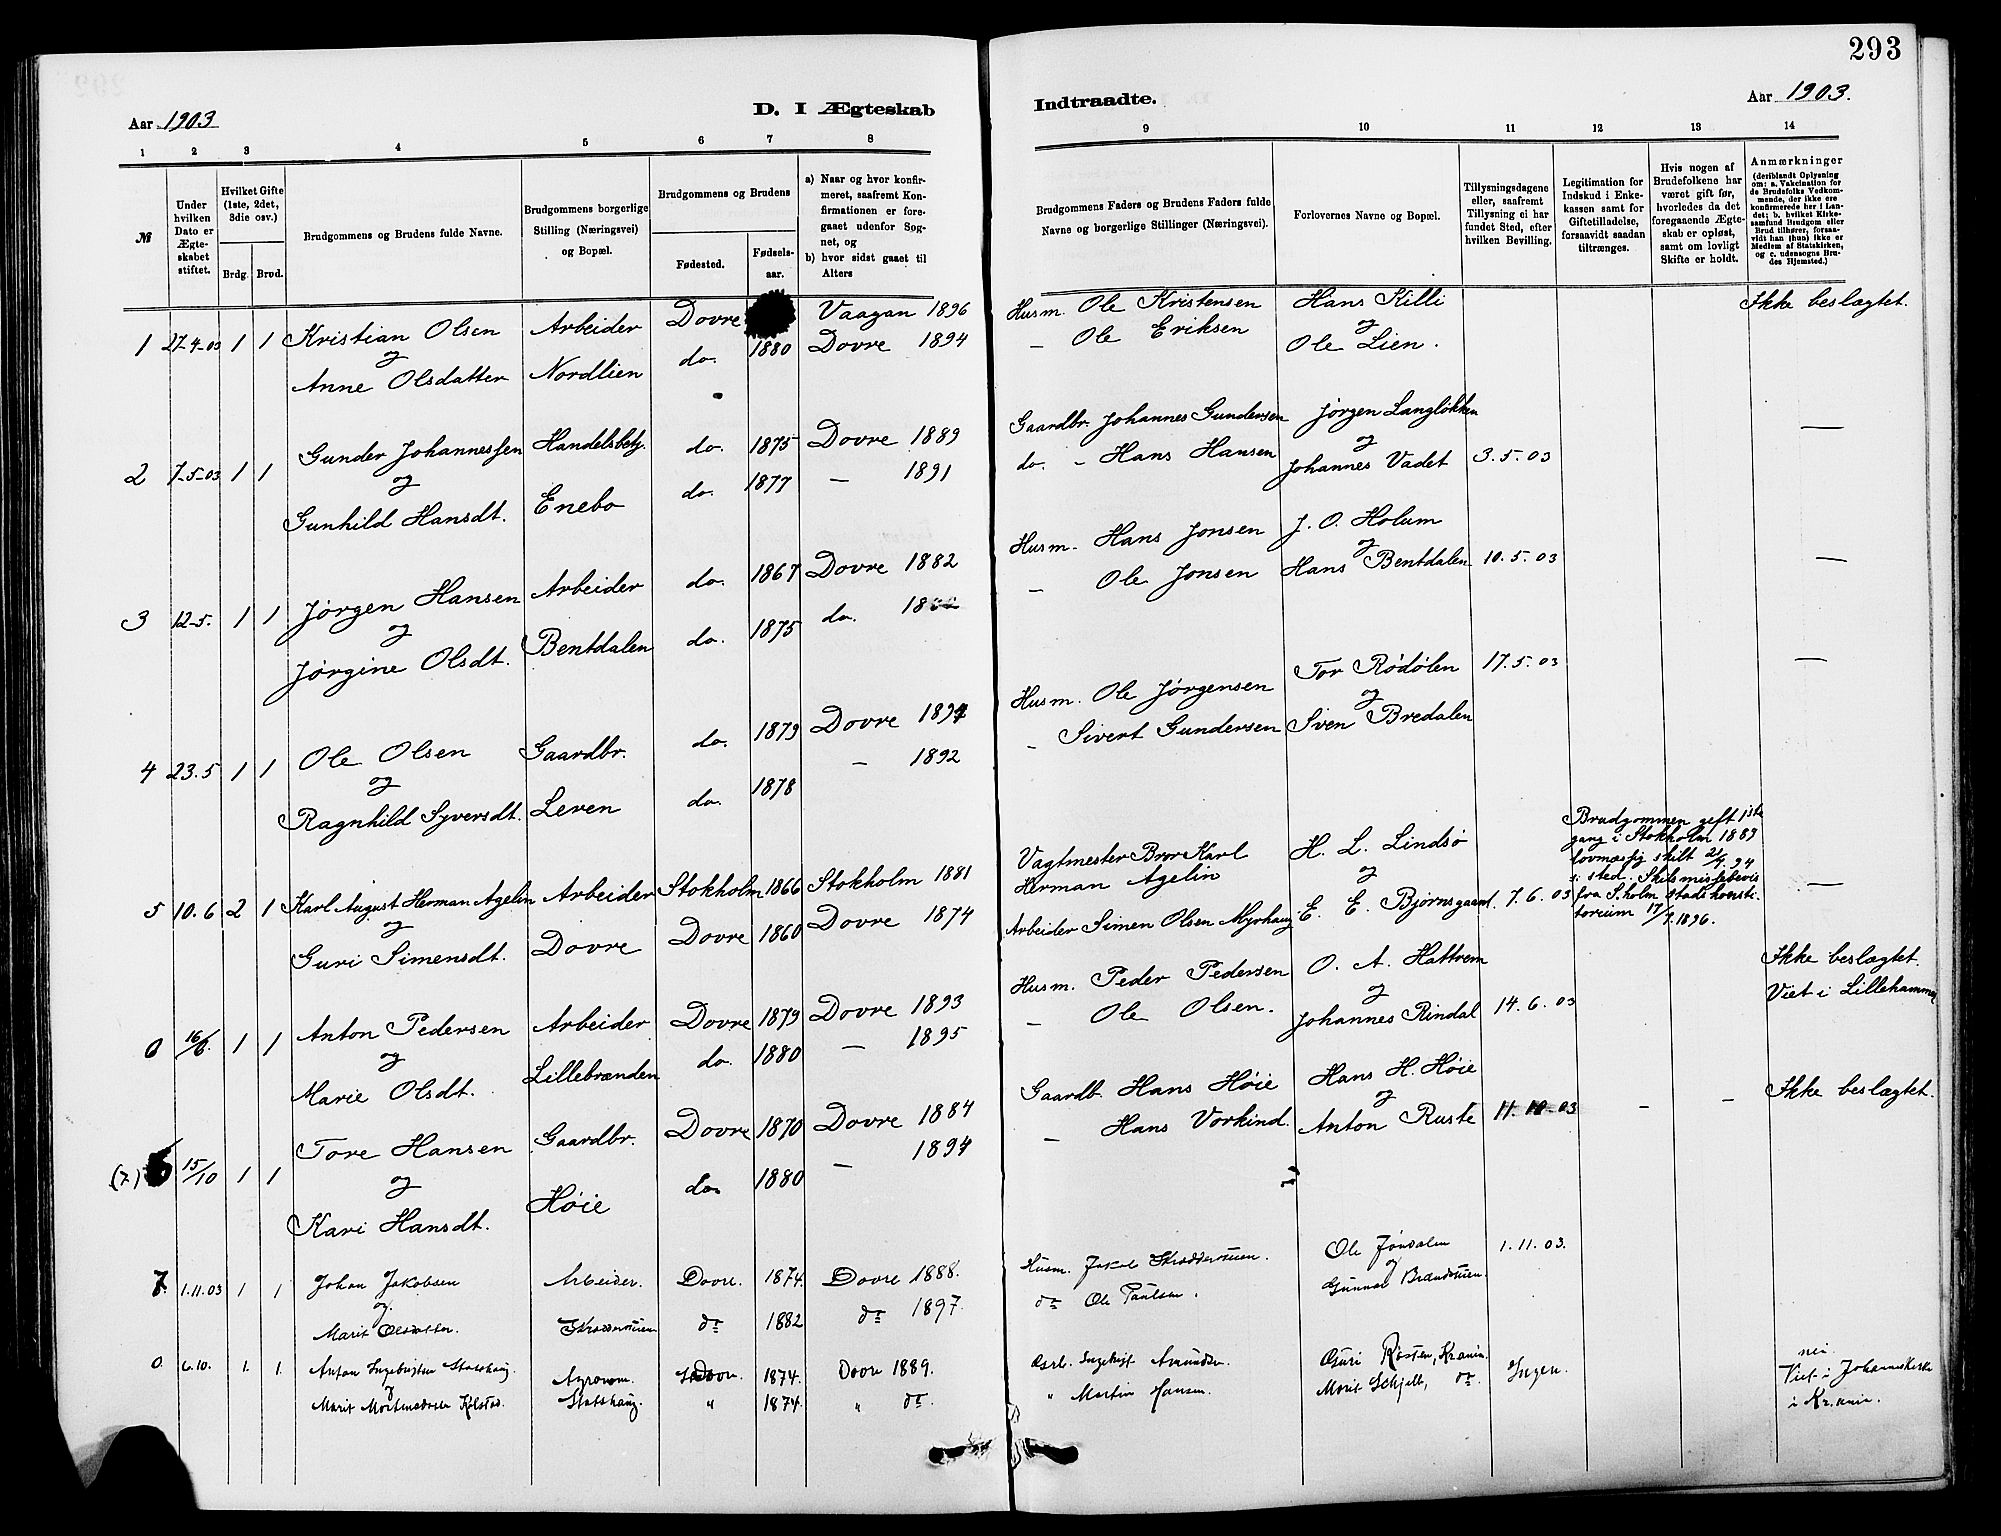 293
Aar 1903
D. I Ægteskab
Indtraadte.
Aar 1903.
1 2 3 4 5 6 7 8
9 10 11 12 13 14
№
Under hvilken Dato er Ægteskabet stiftet.
Hvilket Gifte (1ste, 2det, 3die osv.)
Brdg. Brud.
Brudgommens og Brudens fulde Navne.
Brudgommens borgerlige Stilling (Næringsvei) og Bopæl.
Brudgommens og Brudens
Fødested. Fødselsaar.
a) Naar og hvor konfirmeret, saafremt Konfirmationen er foregaaet udenfor Sognet, og
b) hvor sidst gaaet til Alters
Brudgommens Faders og Brudens Faders fulde Navne og borgerlige Stillinger (Næringsvei).
Forlovernes Navne og Bopæl.
Tillysningsdagene eller, saafremt Tillysning ei har fundet Sted, efter hvilken Bevilling.
Legitimation for Indskud i Enkekassen samt for Giftetilladelse, forsaavidt saadan tiltrænges.
Hvis nogen af Brudefolkene har været gift før, hvorledes da det foregaaende Ægteskab er opløst, samt om lovligt Skifte er holdt.
Anmærkninger (deriblandt Oplysning om: a. Vakcination for de Brudefolks Vedkommende, der ikke ere konfirmerede her i Landet; b. hvilket Kirkesamfund Brudgom eller Brud tilhører, forsaavidt han (hun) ikke er Medlem af Statskirken, og c. udensogns Brudes Hjemsted.)
1 27-4-03 1 1 Kristian Olsen Arbeider Dovre Vaagan 1896 Husm. Ole Kristensen Hans Killi Ikke beslægtet.
og 1880 Dovre 1894 — Ole Eriksen og
Anne Olsdatter Nordlien do. Ole Lien.
2 7-5-03 1 1 Gunder Johannessen Handelsbetj. do. 1875 Dovre 1889 Gaardbr. Johannes Gundersen Jørgen Langløkken —
og do. 1877 — 1891 do. - Hans Hansen og
Gunhild Hansdt. Enebo Johannes Vadet 3.5.03
3 12-5. 1 1 Jørgen Hansen Arbeider do. 1867 Dovre 1882 Husm. Hans Jonsen J. O. Holum —
og do. 1875 do. — Ole Jonsen og
Jørgine Olsdt. Bentdalen Hans Bentdalen 10.5.03
4 23.5 1 1 Ole Olsen Gaardbr. do. 1879 Dovre 1894 Husm. Ole Jørgensen Tor Rødølen 17.5.03 —
og do. 1878 — 1892 — Sivert Gundersen og
Ragnhild Syversdt. Leven Sven Bredalen
5 10.6 2 1 Karl August Herman Agelin Arbeider Stokholm 1866 Stokholm 1881 Vagtmester Bror Karl Herman Agelin H. L. Lindsø
og Dovre 1860 Dovre 1874 Arbeider Simen Olsen Myrhaug og
Guri Simensdt. Dovre E. E. Bjørnsgaard. 7.6.03
Brudgommen gift 1ste
gang i Stokholm 1889
lovmæssig skilt
s. sted. Skilsmissebevis
fra S.holm stads konsistorium 17/ 1896. —
0 16/6. 1 1 Anton Pedersen Arbeider Dovre 1879 Dovre 1893 Husm. Peder Pedersen O. A. Hattrem Ikke beslægtet.
og do. 1880 — 1895 — Ole Olsen. og Viet i Lillehammer
Marie Olsdt. Lillebrænden Johannes Rindal 14.6.03
(7) 6 15/10 1 1 Tore Hansen Gaardbr. Dovre 1870 Dovre 1884 Gaardb. Hans Høie Hans H. Høie - - Ikke beslægtet.
og do. 1880 — 1894 — Hans Vorkind. og
Kari Hansdt. Høie Anton Ruste 11.10.03
7. 1.11.03 1 1 Johan Jakobsen Arbeider. Dovre. 1874. Dovre 1888. Husm. Jakob Ole Jøndalen 1.11.03.
og do 1882 do 1897. do Ole Paulsen. og
Marit Olsdatter. Gunnar
0 6.10. 1. 1. Anton Statshaug. Agronom. Dovre. 1874. Dovre 1889. Guri Røsten, Kr.ania. Ingen. nei.
og Statshaug. " 1874. " do. " Martin Hansen. Marit Schjelt, do. Viet i Johanneskirke
Marit Kolstad. i Kr.ania.